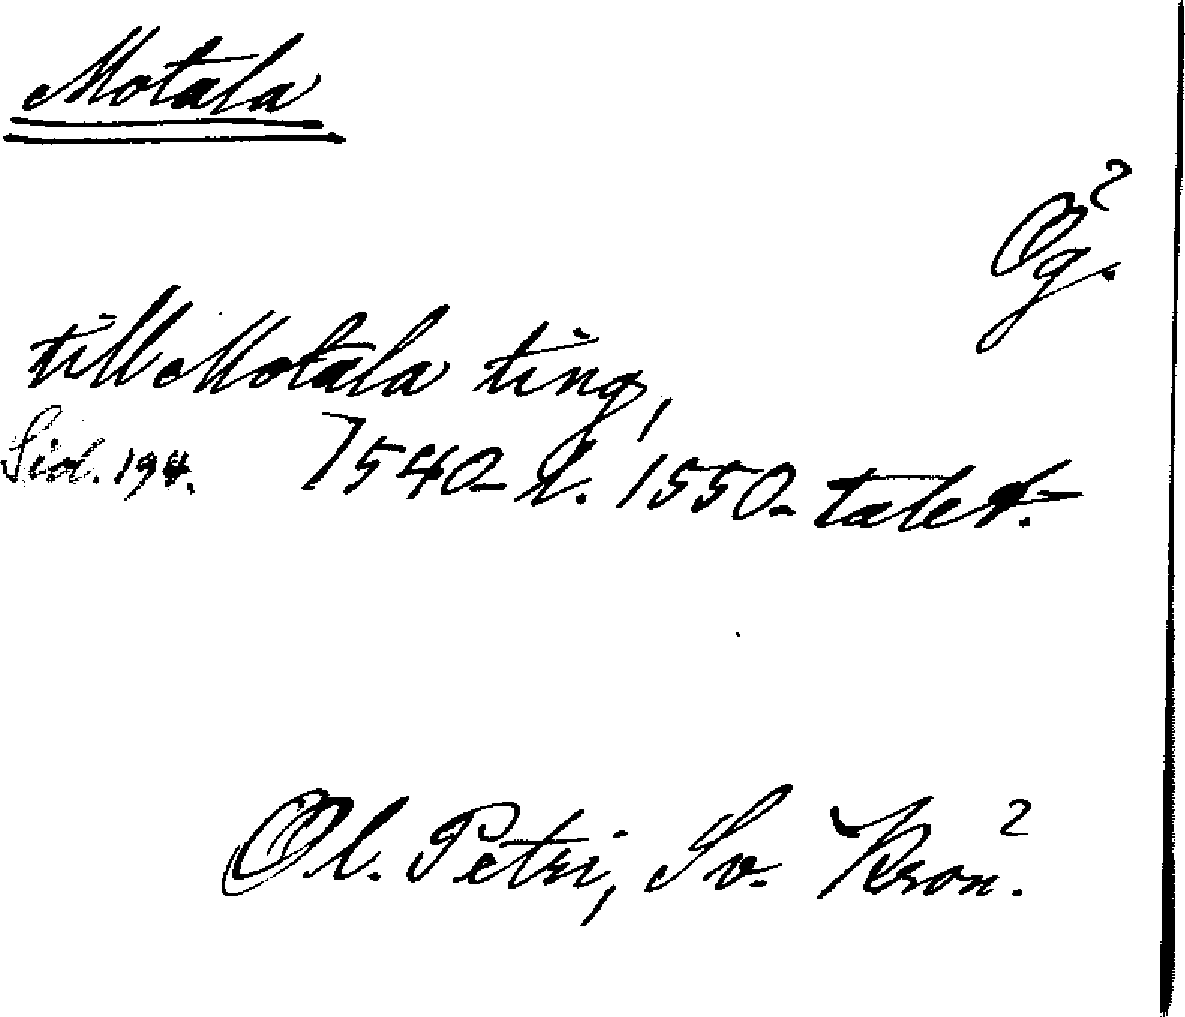 Motala
Ög.²
till Motala ting,
Sid. 194. 1540- l. 1550-talet.
Ol. Petri, Sv. Krön.²